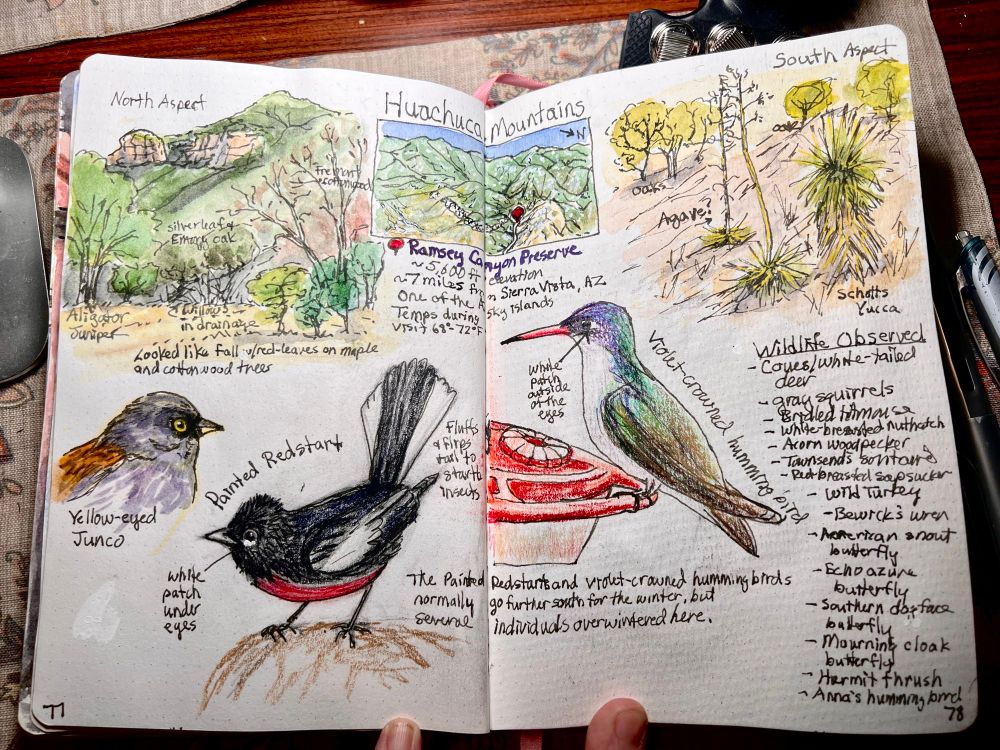 Huachuca Mountains
North Aspect
fremont
cottonwood
silverleaf &
Emory oak
Alligator
Juniper
willows
in drainage
Looked like fall w/red-leaves on maple
and cottonwood trees
N
Ramsey Canyon Preserve
~5,600 ft elevation
~7 miles Sierra Vista, AZ
One of the Sky Islands
Temps during
visit 68°-72°F
South Aspect
oaks
oak
Agave?
Schotts
Yucca
Yellow-eyed
Junco
Painted Redstart
Fluffs
& fires
tail to
startle
insects
white
patch
under
eyes
white
patch
outside
of the
eyes
Violet-crowned hummingbird
The Painted Redstart and violet-crowned hummingbirds
normally go further south for the winter, but
several individuals overwintered here.
Wildlife Observed
- Coues/white-tailed
deer
- gray squirrels
- Bridled titmouse
- White-breasted nuthatch
- Acorn woodpecker
- Townsend's solitaire
- Red-breasted sapsucker
- Wild Turkey
- Bewick's wren
- American snout
butterfly
- Echo azure
butterfly
- Southern dogface
butterfly
- Mourning cloak
butterfly
- Hermit thrush
- Anna's hummingbird
77
78